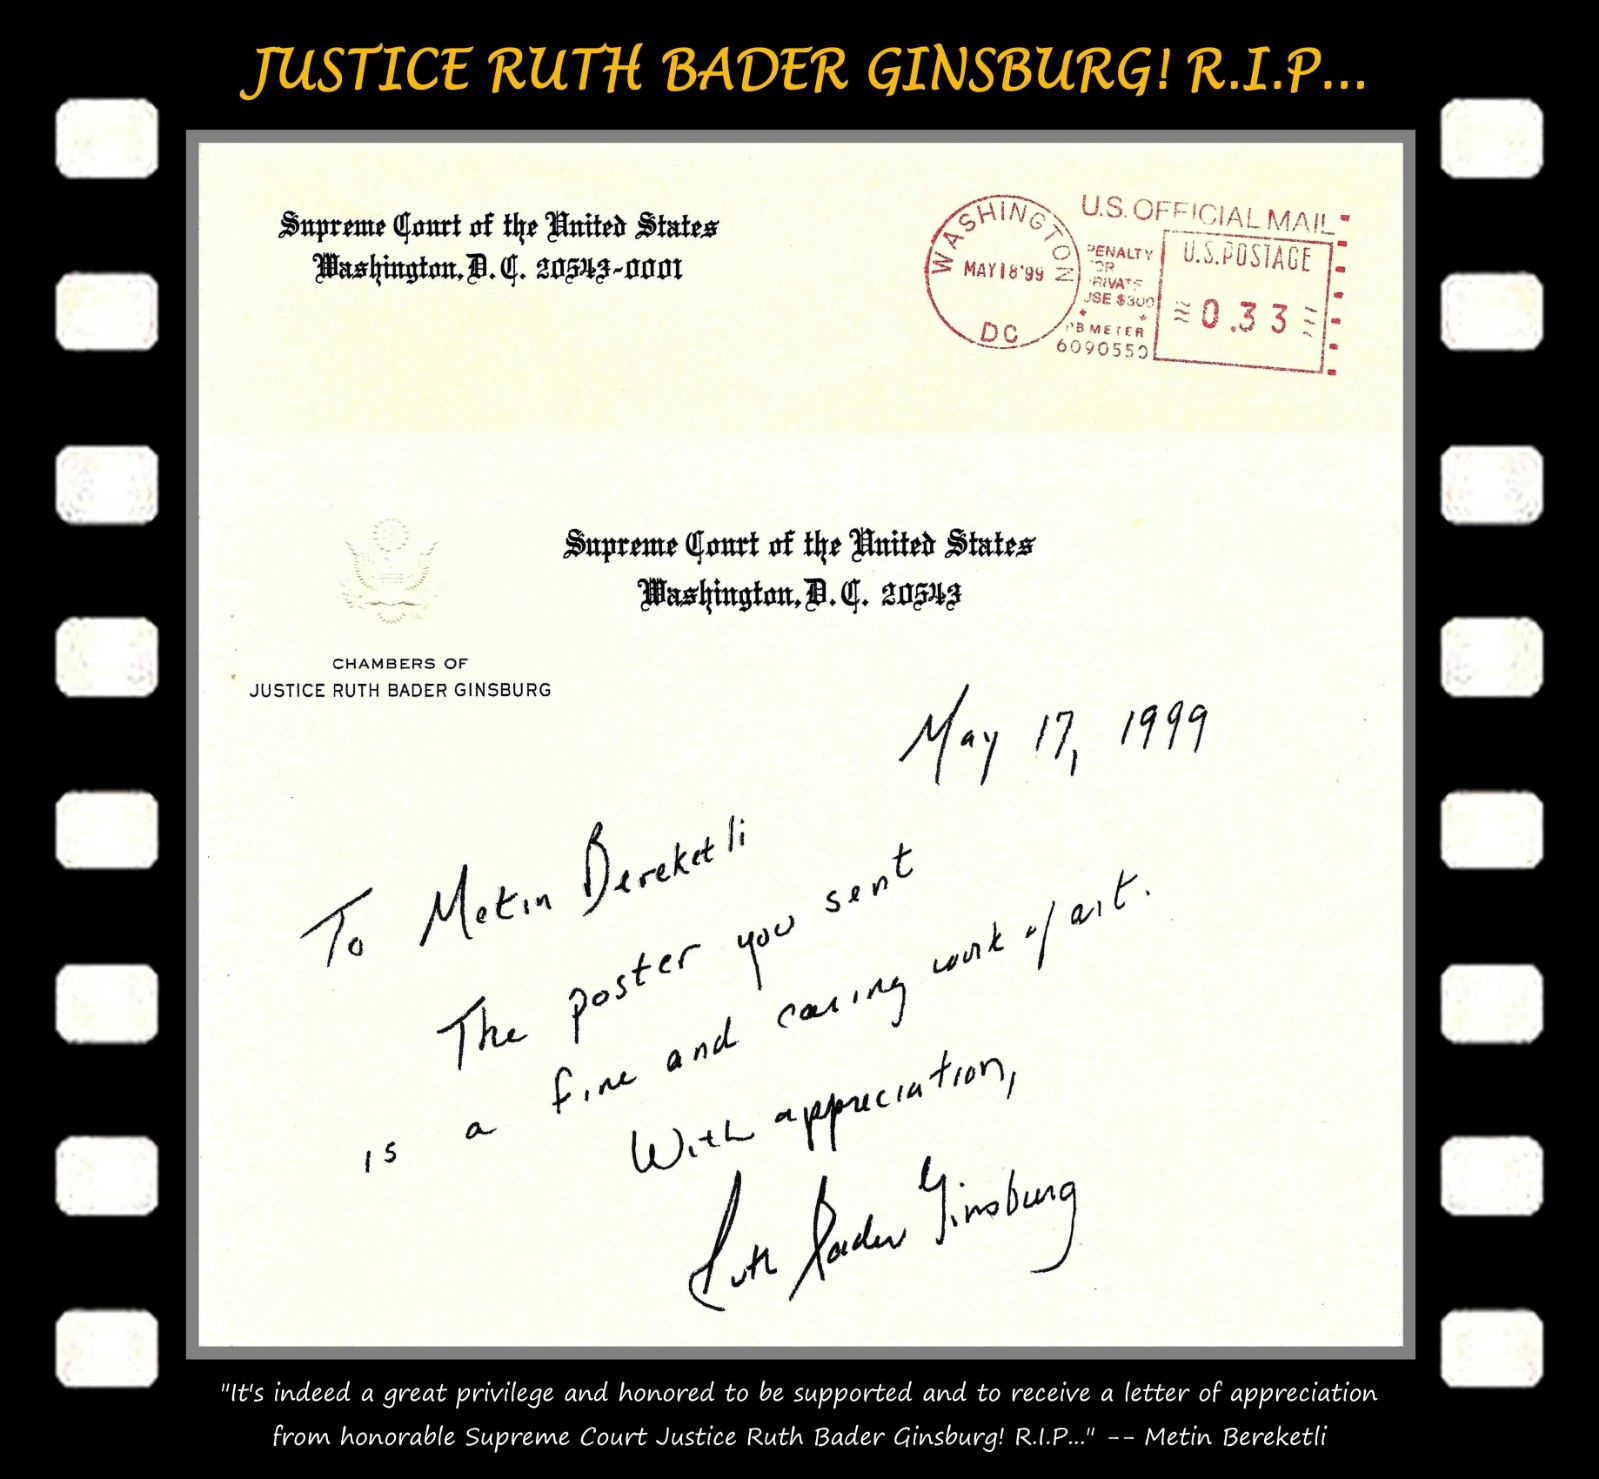 JUSTICE RUTH BADER GINSBURG! R.I.P...
Supreme Court of the United States
Washington, D.C. 20543-0001
WASHINGTON
MAY 18 '99
DC
U.S. OFFICIAL MAIL
PENALTY
USE $300
PB METER
6090550
U.S. POSTAGE
0.33
Supreme Court of the United States
Washington, D.C. 20543
CHAMBERS OF
JUSTICE RUTH BADER GINSBURG
May 17, 1999
To Metin Bereketli
The poster you sent
is a fine and caring work of art.
With appreciation,
Ruth Bader Ginsburg
"It's indeed a great privilege and honored to be supported and to receive a letter of appreciation
from honorable Supreme Court Justice Ruth Bader Ginsburg! R.I.P..." -- Metin Bereketli